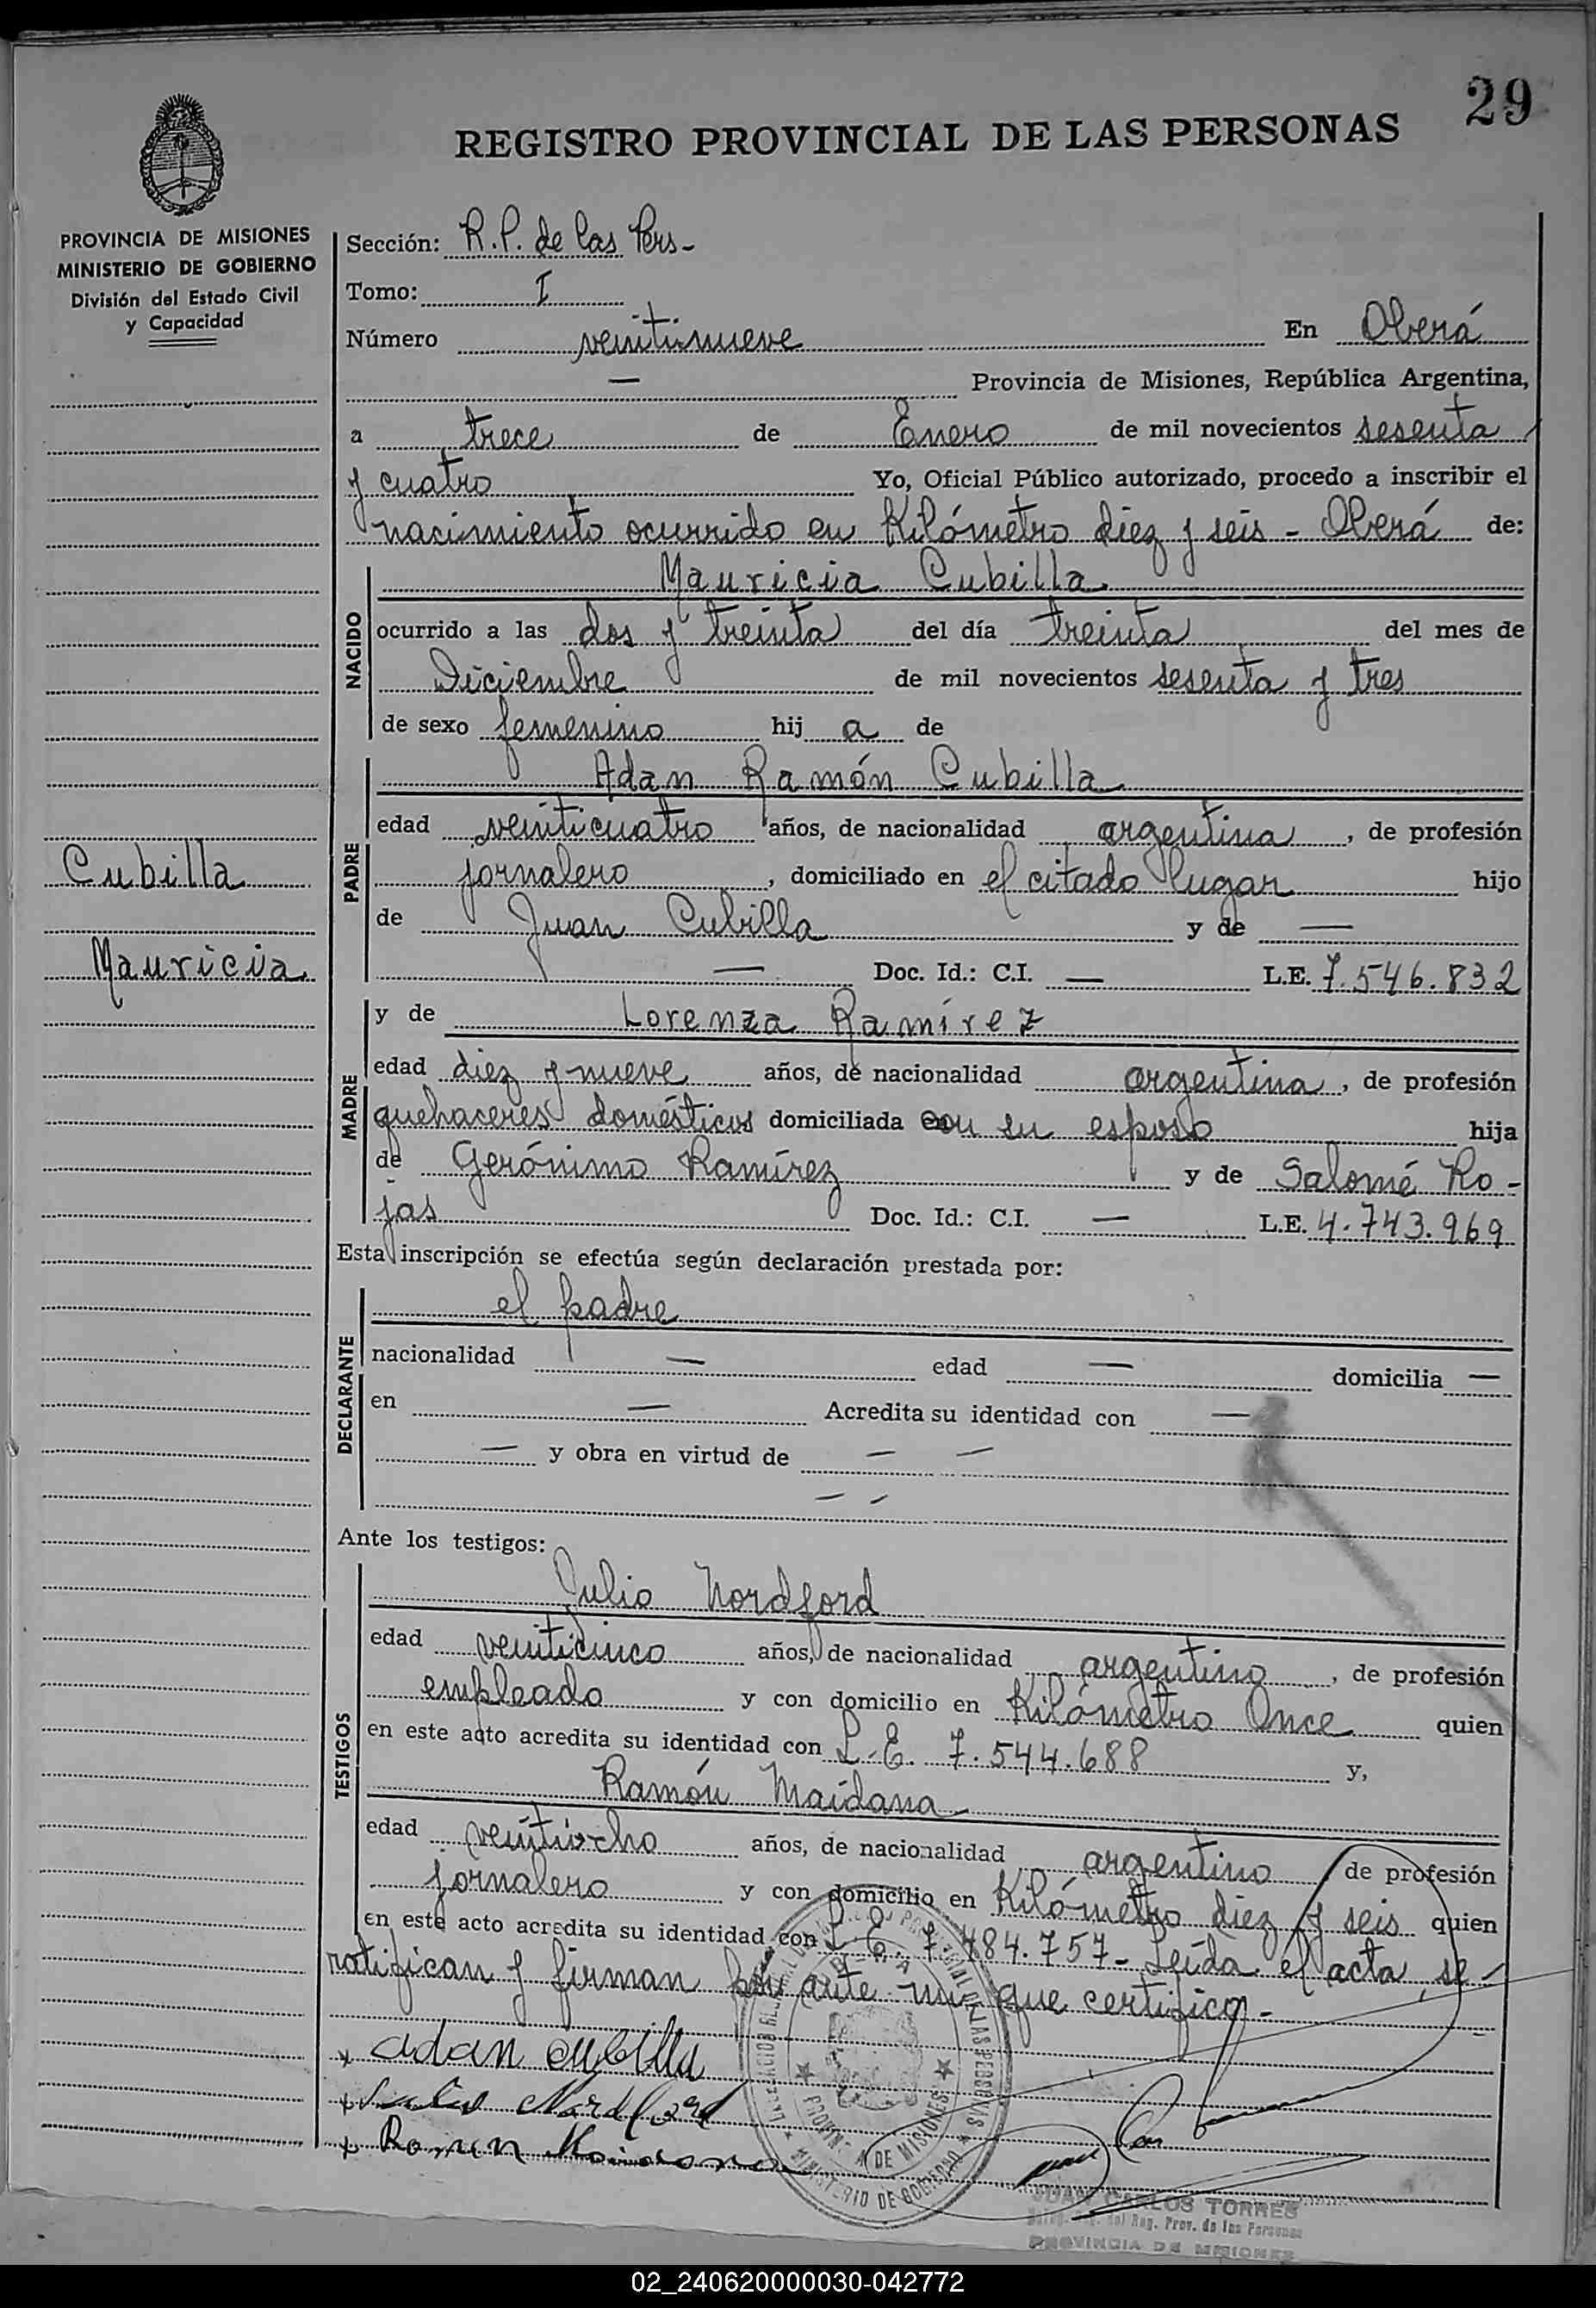 29
REGISTRO PROVINCIAL DE LAS PERSONAS
PROVINCIA DE MISIONES
MINISTERIO DE GOBIERNO
División del Estado Civil
y Capacidad
Sección: R.P. de las Pers-
Tomo: I
Número veintinueve En Oberá
— Provincia de Misiones, República Argentina,
a trece de Enero de mil novecientos sesenta
y cuatro Yo, Oficial Público autorizado, procedo a inscribir el
nacimiento ocurrido en Kilómetro diez y seis - Oberá de:
NACIDO
Mauricia Cubilla
ocurrido a las dos y treinta del día treinta del mes de
Diciembre de mil novecientos sesenta y tres
de sexo femenino hij a de
PADRE
Adan Ramón Cubilla
edad veinticuatro años, de nacionalidad argentina, de profesión
jornalero, domiciliado en el citado lugar hijo
de Juan Cubilla y de —
— Doc. Id.: C.I. — L.E. 7.546.832
Cubilla
Mauricia
MADRE
y de Lorenza Ramírez
edad diez y nueve años, de nacionalidad argentina, de profesión
quehaceres domésticos domiciliada con su esposo hija
de Gerónimo Ramírez y de Salomé Ro-
jas Doc. Id.: C.I. — L.E. 4.743.969
Esta inscripción se efectúa según declaración prestada por:
DECLARANTE
el padre
nacionalidad — edad — domicilia —
en — Acredita su identidad con —
— y obra en virtud de — —
— —
Ante los testigos:
TESTIGOS
Julio Nordford
edad veinticinco años, de nacionalidad argentino, de profesión
empleado y con domicilio en Kilómetro Once quien
en este acto acredita su identidad con L.E. 7.544.688 y,
Ramón Maidana
edad veintiocho años, de nacionalidad argentino, de profesión
jornalero y con domicilio en Kilómetro diez y seis quien
en este acto acredita su identidad con L.E. 7.484.757- Leída el acta, se-
ratifican y firman por ante mí que certifico-
x adan cubilla
x Julio Nordford
x Ramon Maidana
PROVINCIA DE MISIONES
MINISTERIO DE GOBIERNO
JUAN CARLOS TORRES
del Reg. Prov. de las Personas
PROVINCIA DE MISIONES
02_240620000030-042772